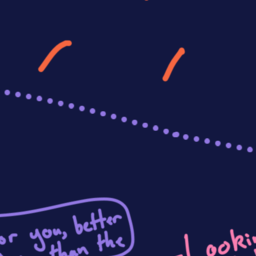 or you, better
than the
Lookin